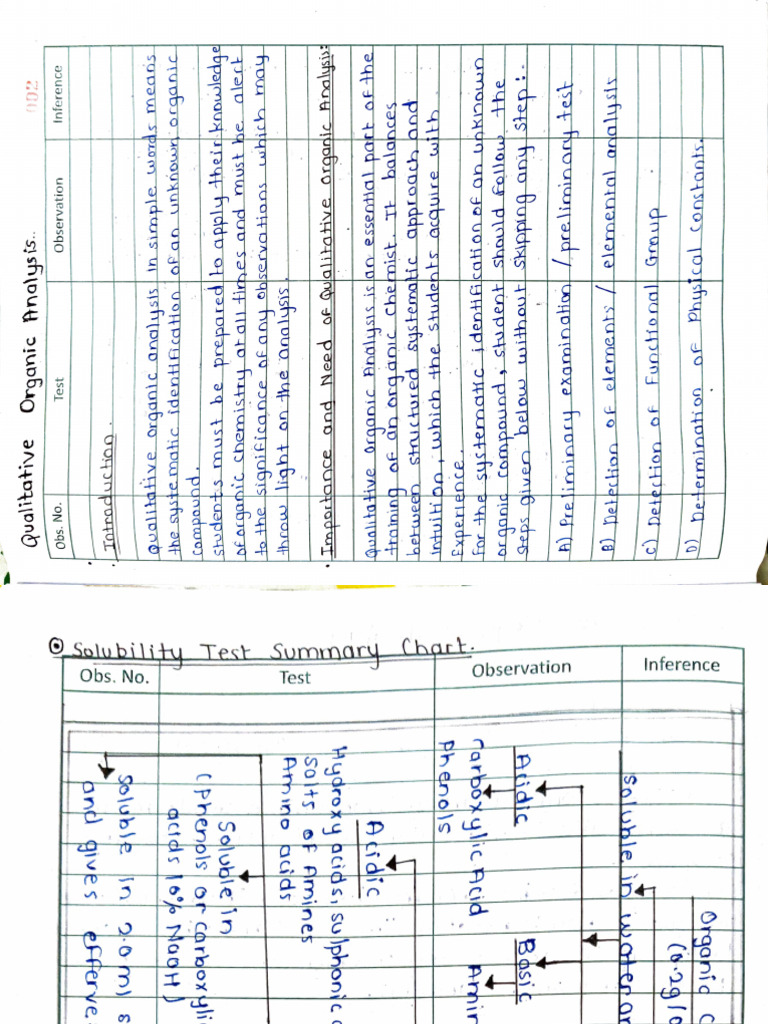 Qualitative Organic Analysis..
Obs. No. Test Observation Inference
• Introduction.
Qualitative organic analysis in simple words means
the systematic identification of an unknown organic
compound.
students must be prepared to apply their knowledge
of organic chemistry at all times and must be alert
to the significance of any observations which may
throw light on the analysis.
• Importance and Need of Qualitative organic Analysis:
Qualitative organic Analysis is an essential part of the
training of an organic chemist. It balances
between structured systematic approach and
intuition, which the students acquire with
Experience.
For the systematic identification of an unknown
organic compound, student should follow the
steps given below without skipping any step:-
A) Preliminary examination / preliminary test
B) Detection of elements / elemental analysis
C) Detection of Functional Group
D) Determination of Physical constants.
Solubility Test Summary Chart.
Obs. No. Test Observation Inference
Organic
(0.2g/0
Soluble in water
Acidic
Carboxylic Acid
Phenols
Basic
Amin
Acidic
Hydroxy acids, sulphonic
Salts of Amines
Amino acids
Soluble in
(Phenols or carboxyli
acids 10% NaOH)
Soluble in 2.0ml
and gives efferve